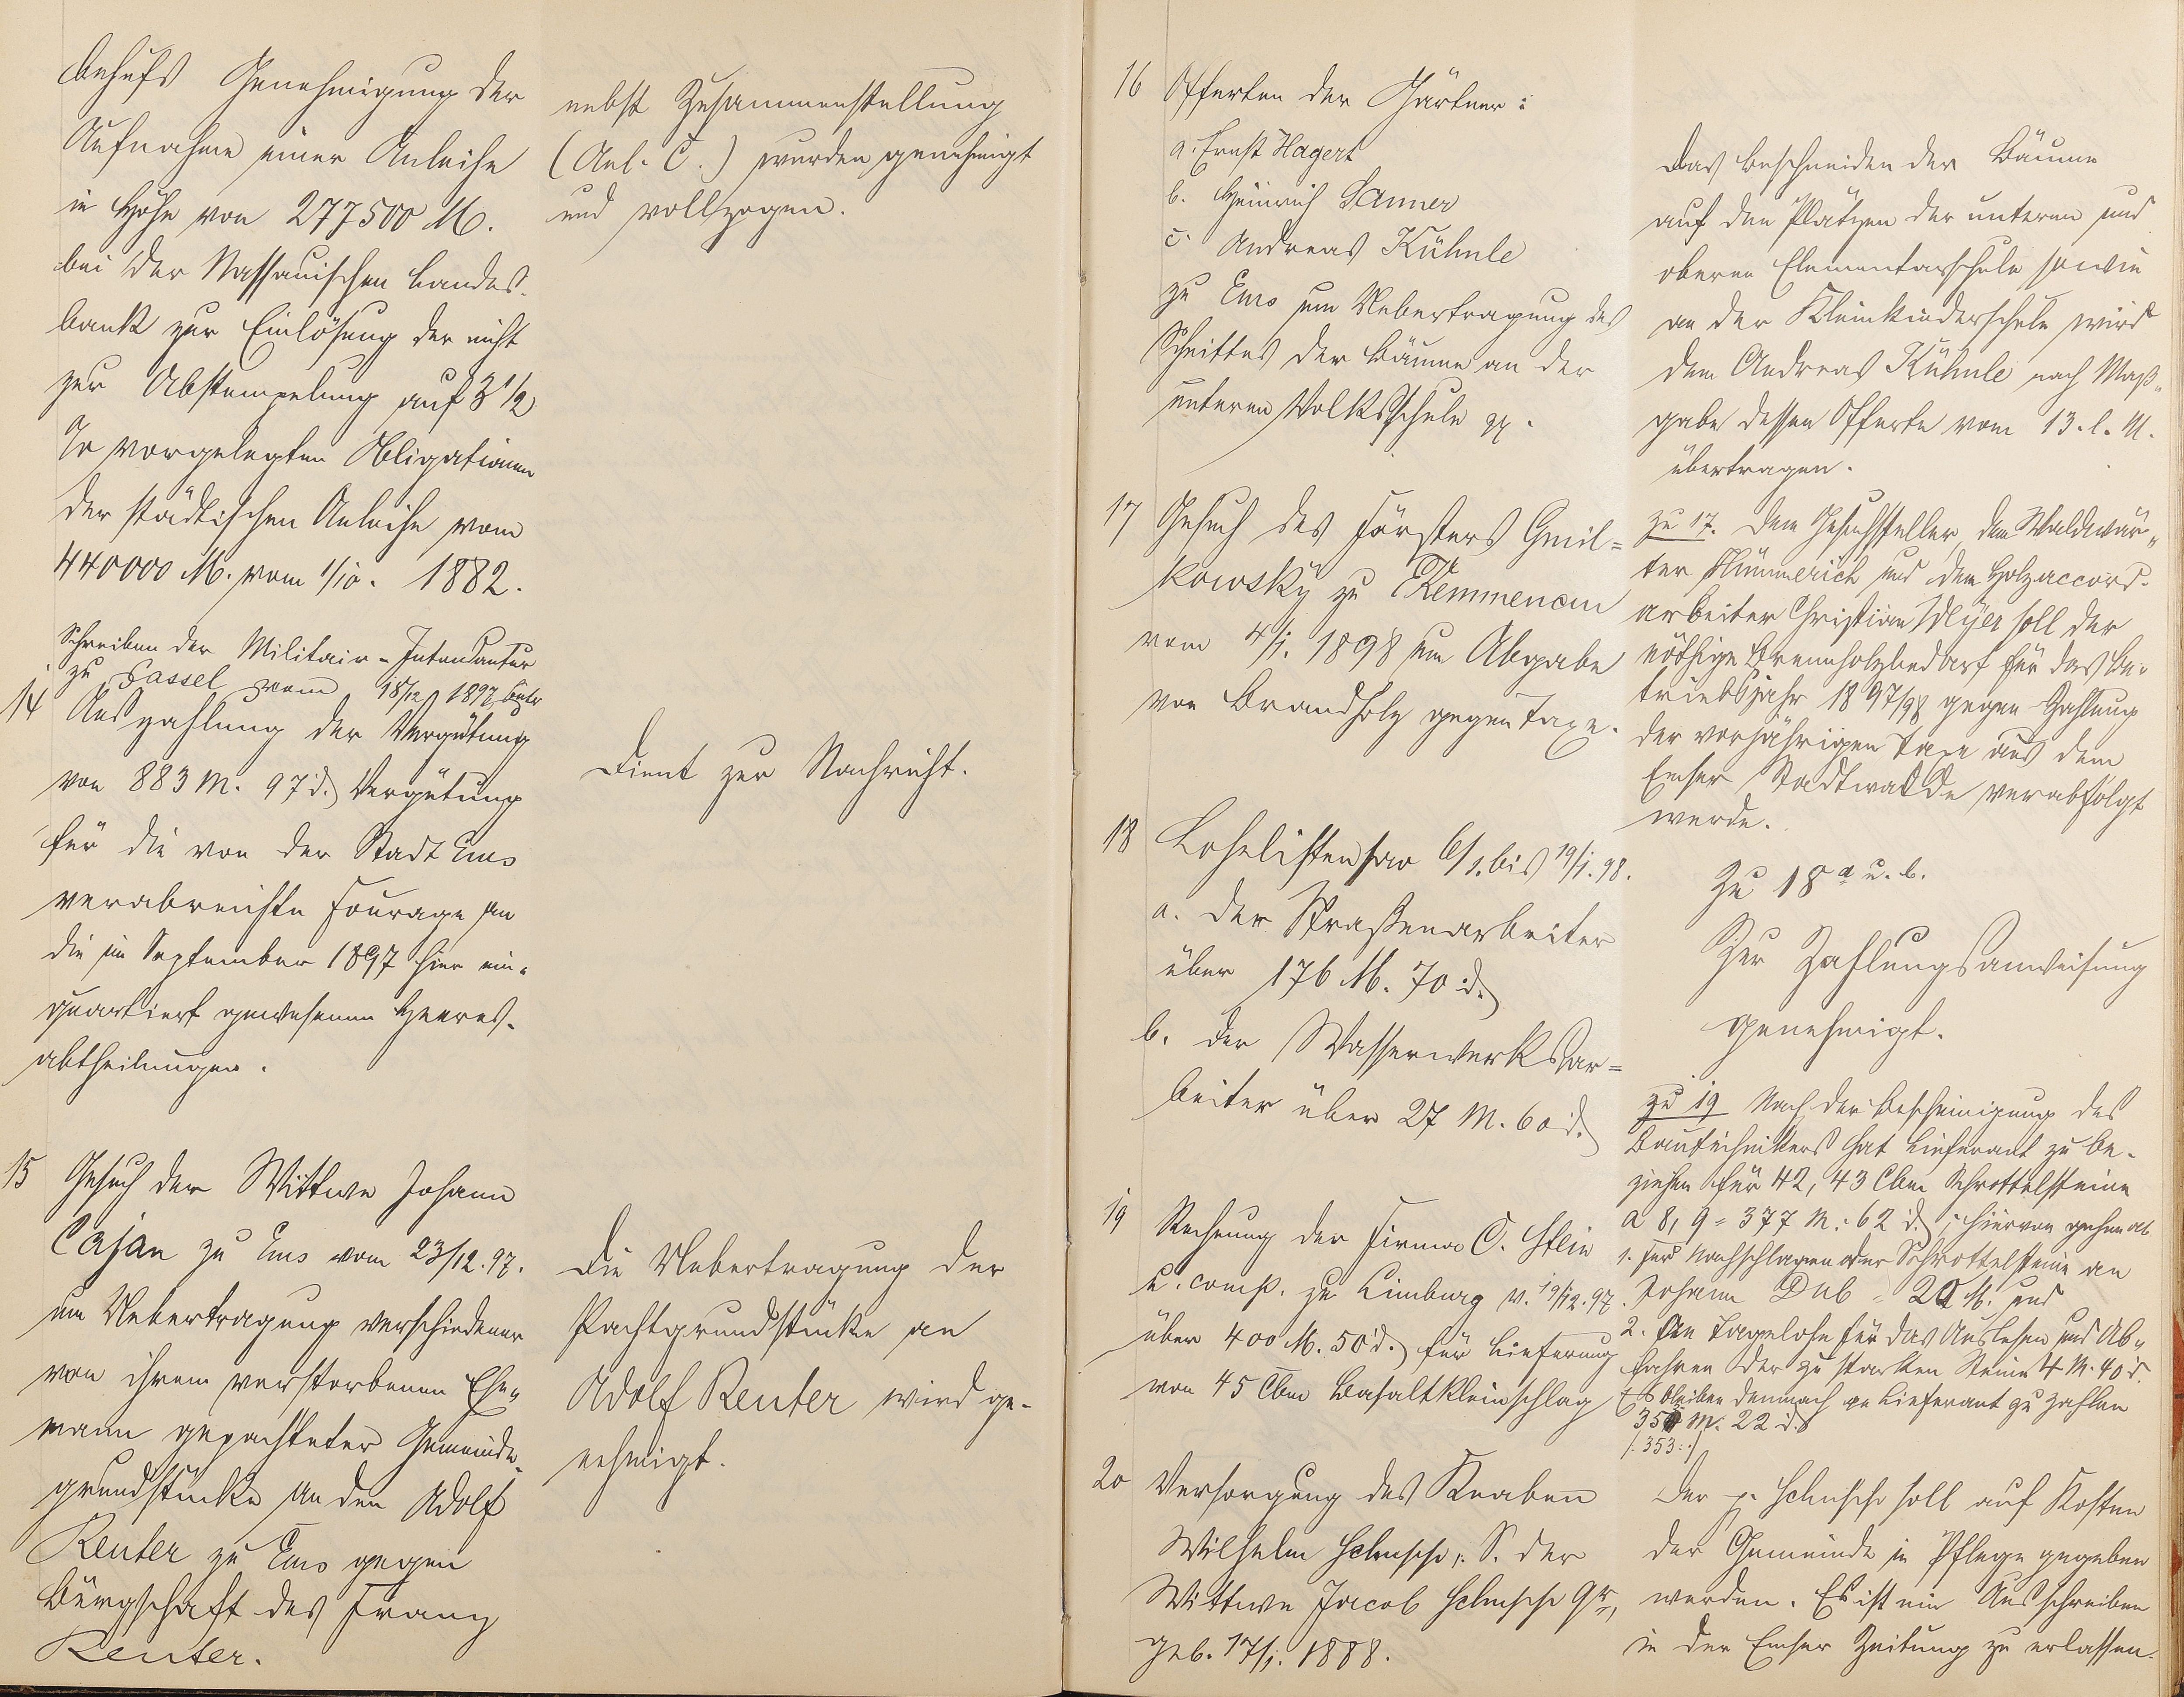 behufs Genehmigung der
Aufnahme einer Anleihe
in Höhe von 277500 M.
bei der Nassauischen Landes-
bank zur Einlösung der nicht
zur Abstempelung auf 3 1/2
% vorgelegten Obligationen
der städtischen Anleihe vom
440000 M. vom 1/10. 1882.
nebst Zusammenstellung
(Anl. C.) wurden genehmigt
und vollzogen.
Schreiben der Militair-Intendantur
zu Cassel vom 18/12 1897 betr
14 Auszahlung der Vergütung
von 883 M. 97 d. Vergütung
für die von der Stadt Ems
verabreichte Fourage an
die im September 1897 hier ein-
quartiert gewesenen Heeres-
abtheilungen.
Dient zur Nachricht.
15 Gesuch der Wittwe Johann
Cajan zu Ems vom 23/12.97.
um Uebertragung verschiedener
von ihrem verstorbenen Ehe-
mann gepachteter Gemeinde-
grundstücke an den Adolf
Reuter zu Ems gegen
Bürgschaft des Franz
Reuter.
Die Uebertragung der
Pachtgrundstücke an
Adolf Reuter wird ge-
nehmigt.
16 Offerten der Gärtner:
a. Ernst Hagert
b. Heinrich Sanner
c. Andreas Kühnle
zu Ems um Uebertragung des
Schnittes der Bäume an der
unteren Volksschule pp.
Das Beschneiden der Bäume
auf den Plätzen der unteren und
oberen Elementarschule sowie
an der Kleinkinderschule wird
dem Andreas Kühnle nach Maß-
gabe dessen Offerte vom 13. l. M.
übertragen.
17 Gesuch des Försters Gmil=
kowsky zu Kemmenau
vom 4/1. 1898 um Abgabe
von Brandholz gegen Taxe.
zu 17. Dem Gesuchsteller, dem Waldwär-
ter Flümmerich und dem Holzaccord-
arbeiter Christian soll der
nöthige Brennholzbedarf für das Be-
triebsjahr 1897/98 gegen Zahlung
der vorjährigen Taxe aus dem
Emser Stadtwalde verabfolgt
werde.
18 Lohnlisten pro 6/1. bis 19/1. 98.
a. der Straßenarbeiter
über 176 M. 70 d.
b. der Wasserwerksar=
beiter über 27 M. 60 d.
Zu 18 a u. b.
Zur Zahlungsanweisung
genehmigt.
19 Rechnung der Firma C. Stein
u. comp. zu Limburg v. 19/12. 97.
über 400 M. 50 d. für Lieferung
von 45 Cbm Basaltkleinschlag
zu 19 Nach der Bescheinigung des
Bautechnikers hat Lieferant zu be-
ziehen für 42,43 Cbm Schrottelsteine
a 8,9 = 377 M. 62 d., hiervon gehen ab
1. für Nachschlagen der Schrottelsteine an
Johann Dub = 20 M. und
2. An Tagelohn für das Auslesen und Ab-
fahren der zu starken Steine 4 M. 40 d.
Es bleiben demnach an Lieferant zu zahlen
353 M. 22 d.
/.353./
20 Versorgung des Knaben
Wilhelm, S. der
Wittwe Jacob
geb. 17/1. 1888.
Der p. soll auf Kosten
der Gemeinde in Pflege gegeben
werden. Es ist ein Ausschreiben
in der Emser Zeitung zu erlassen.